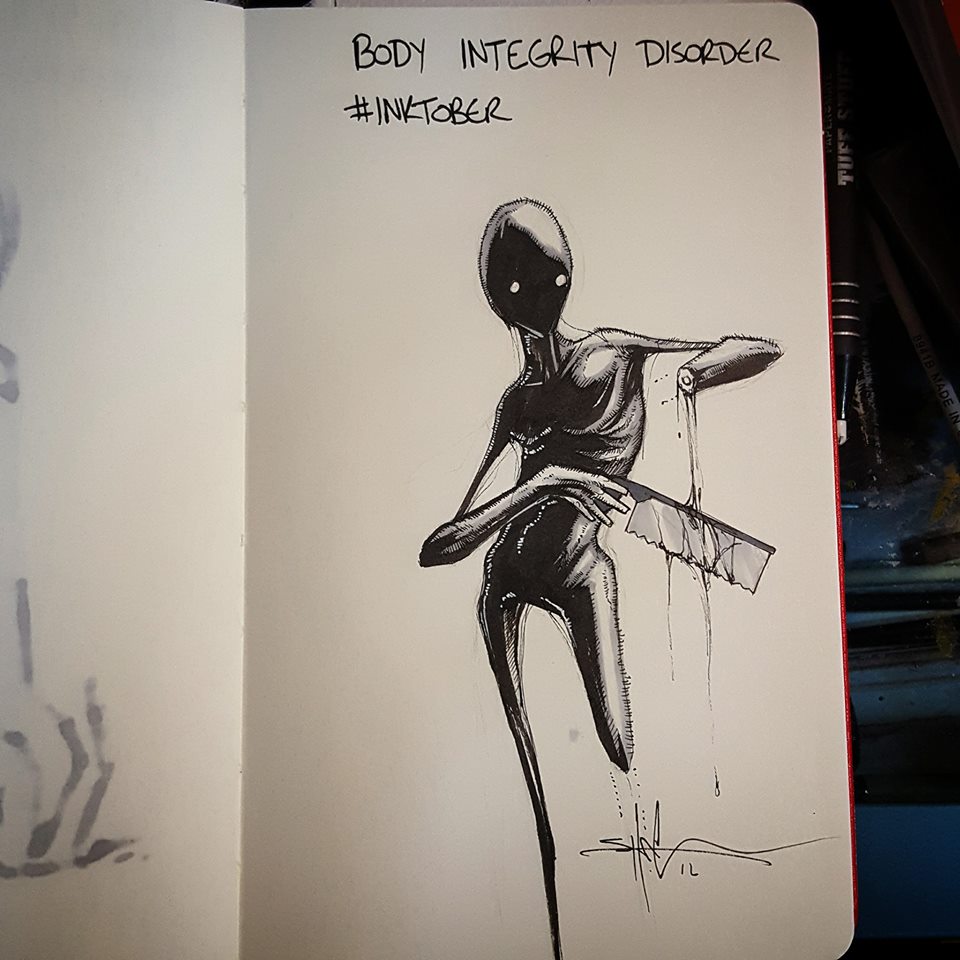 BODY INTEGRITY DISORDER
#INKTOBER
TUFF SWIFF
MADE IN
12